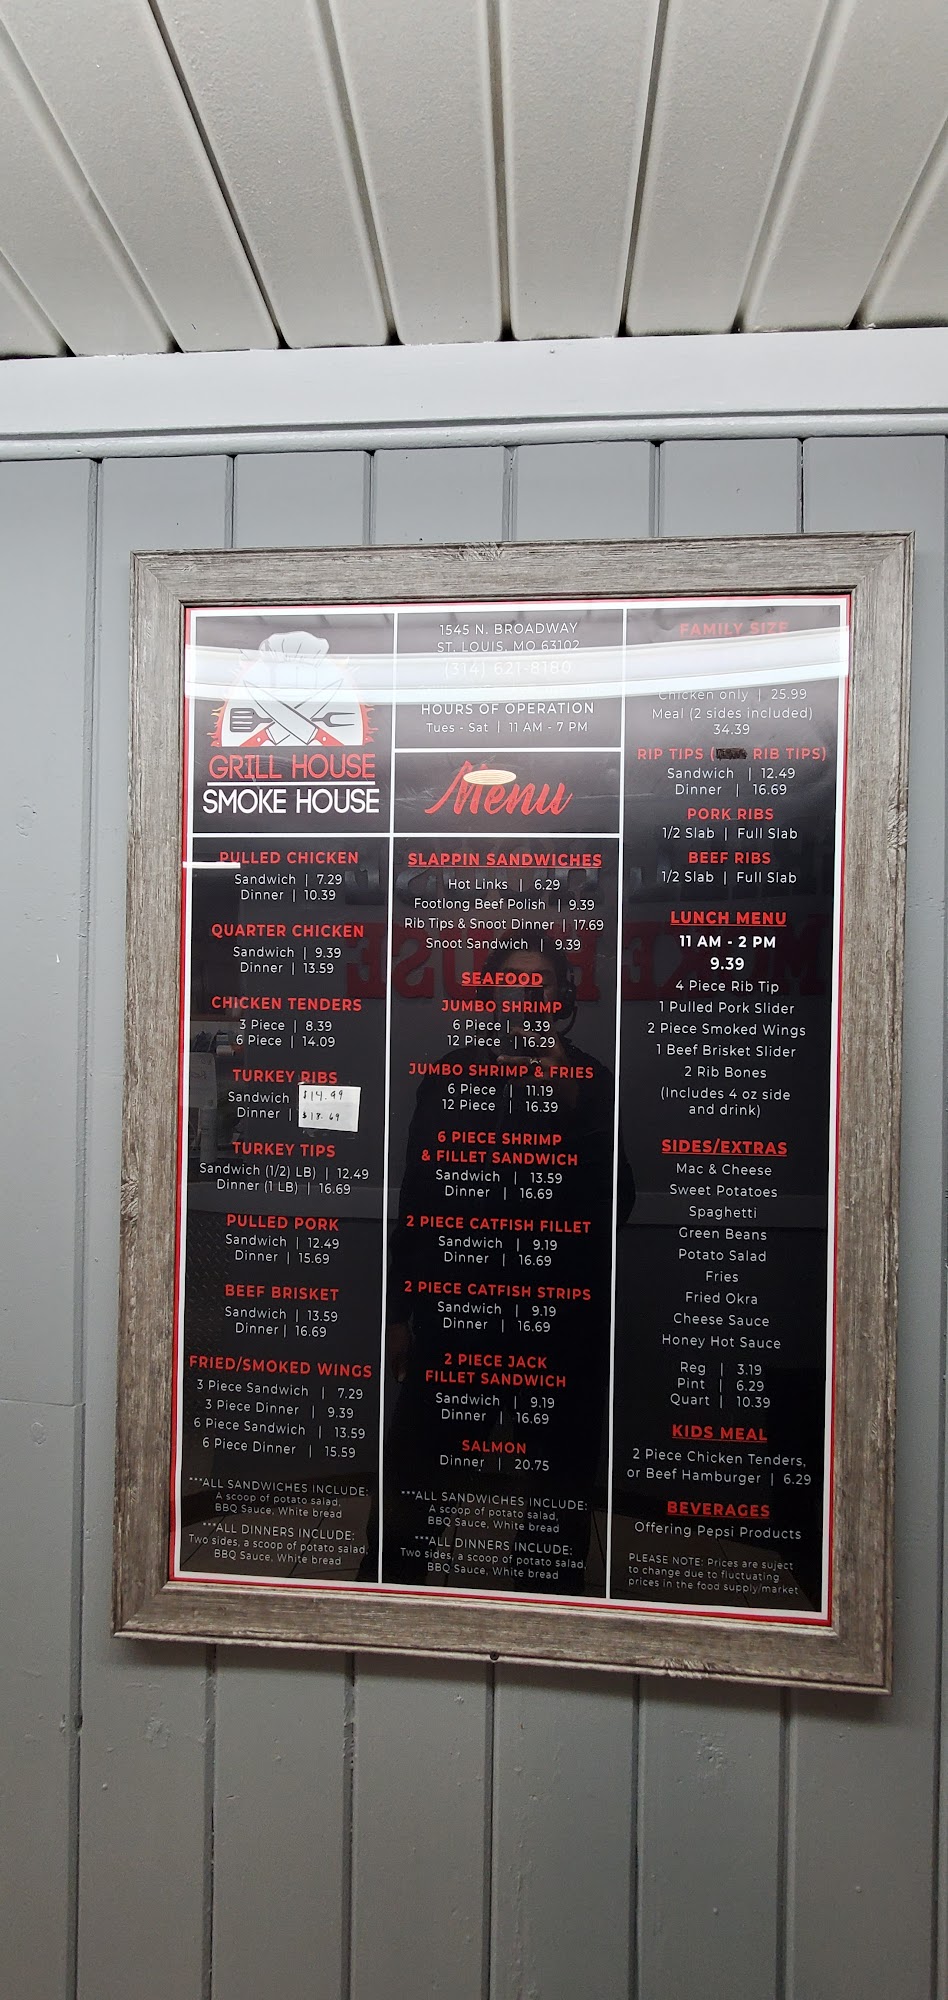 GRILL HOUSE
SMOKE HOUSE
1545 N. BROADWAY
ST. LOUIS, MO 63102
(314) 621-8180
HOURS OF OPERATION
Tues - Sat | 11 AM - 7 PM
Menu
PULLED CHICKEN
Sandwich | 7.29
Dinner | 10.39
QUARTER CHICKEN
Sandwich | 9.39
Dinner | 13.59
CHICKEN TENDERS
3 Piece | 8.39
6 Piece | 14.09
TURKEY RIBS
Sandwich $14.99
Dinner | $18.69
TURKEY TIPS
Sandwich (1/2) LB) | 12.49
Dinner (1 LB) | 16.69
PULLED PORK
Sandwich | 12.49
Dinner | 15.69
BEEF BRISKET
Sandwich | 13.59
Dinner | 16.69
FRIED/SMOKED WINGS
3 Piece Sandwich | 7.29
3 Piece Dinner | 9.39
6 Piece Sandwich | 13.59
6 Piece Dinner | 15.59
***ALL SANDWICHES INCLUDE:
A scoop of potato salad,
BBQ Sauce, White bread
***ALL DINNERS INCLUDE:
Two sides, a scoop of potato salad,
BBQ Sauce, White bread
SLAPPIN SANDWICHES
Hot Links | 6.29
Footlong Beef Polish | 9.39
Rib Tips & Snoot Dinner | 17.69
Snoot Sandwich | 9.39
SEAFOOD
JUMBO SHRIMP
6 Piece | 9.39
12 Piece | 16.29
JUMBO SHRIMP & FRIES
6 Piece | 11.19
12 Piece | 16.39
6 PIECE SHRIMP
& FILLET SANDWICH
Sandwich | 13.59
Dinner | 16.69
2 PIECE CATFISH FILLET
Sandwich | 9.19
Dinner | 16.69
2 PIECE CATFISH STRIPS
Sandwich | 9.19
Dinner | 16.69
2 PIECE JACK
FILLET SANDWICH
Sandwich | 9.19
Dinner | 16.69
SALMON
Dinner | 20.75
***ALL SANDWICHES INCLUDE:
A scoop of potato salad,
BBQ Sauce, White bread
***ALL DINNERS INCLUDE:
Two sides, a scoop of potato salad,
BBQ Sauce, White bread
FAMILY SIZE
Chicken only | 25.99
Meal (2 sides included)
34.39
RIP TIPS ( RIB TIPS)
Sandwich | 12.49
Dinner | 16.69
PORK RIBS
1/2 Slab | Full Slab
BEEF RIBS
1/2 Slab | Full Slab
LUNCH MENU
11 AM - 2 PM
9.39
4 Piece Rib Tip
1 Pulled Pork Slider
2 Piece Smoked Wings
1 Beef Brisket Slider
2 Rib Bones
(Includes 4 oz side
and drink)
SIDES/EXTRAS
Mac & Cheese
Sweet Potatoes
Spaghetti
Green Beans
Potato Salad
Fries
Fried Okra
Cheese Sauce
Honey Hot Sauce
Reg | 3.19
Pint | 6.29
Quart | 10.39
KIDS MEAL
2 Piece Chicken Tenders,
or Beef Hamburger | 6.29
BEVERAGES
Offering Pepsi Products
PLEASE NOTE: Prices are suject
to change due to fluctuating
prices in the food supply/market